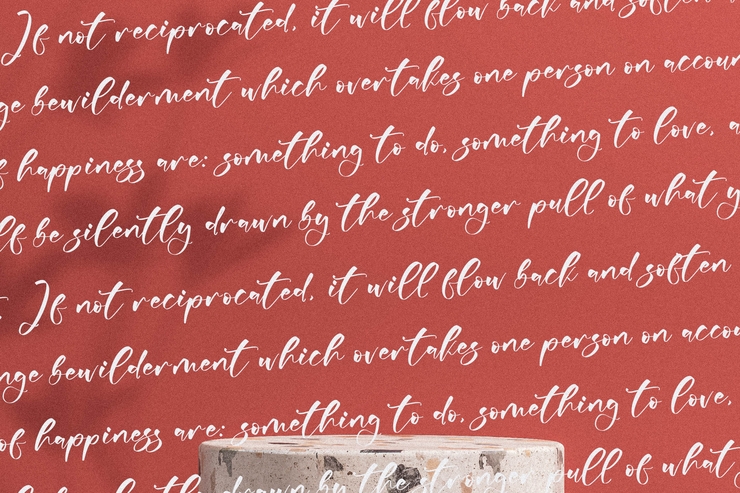 If not reciprocated, it will flow back and soften
bewilderment which overtakes one person on
happiness are: something to do, something to love,
be silently drawn by the stronger pull of what
If not reciprocated, it will flow back and soften
bewilderment which overtakes one person on
of happiness are: something to do, something to love,
drawn by the stronger pull of what